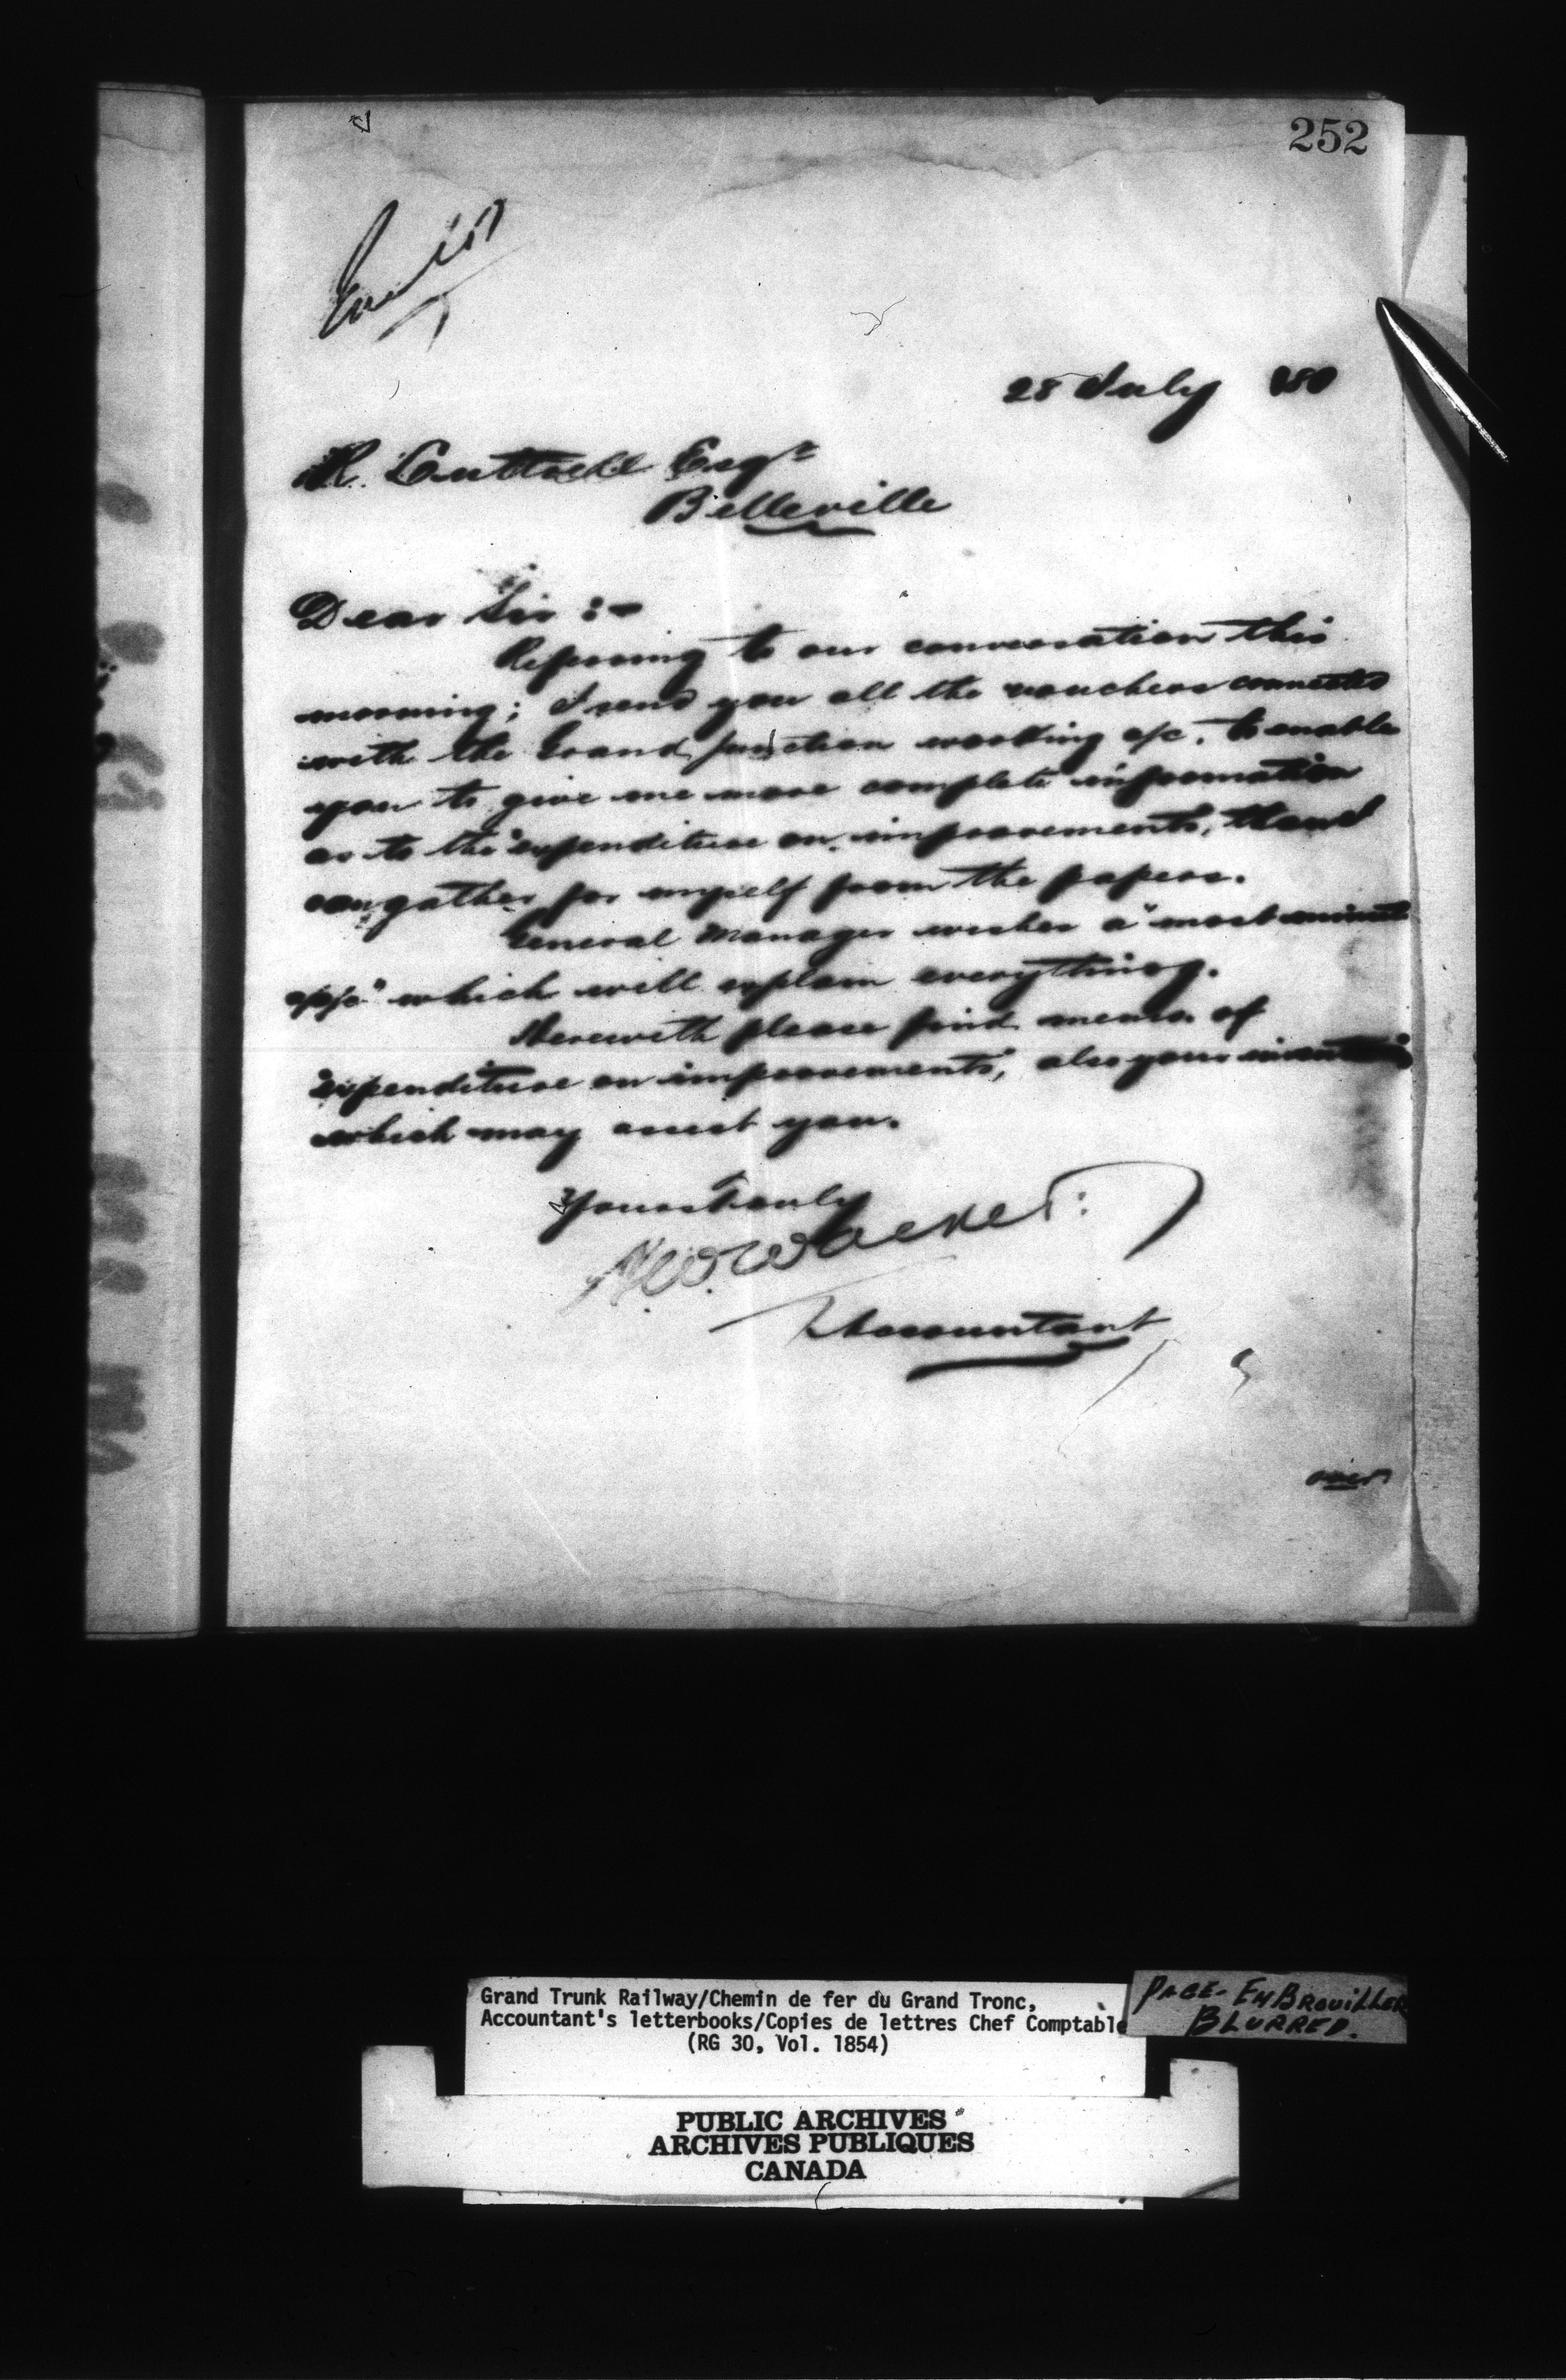 252
28 July 180
R. Luttrell Esqr
Belleville
Dear Sir :-
Referring to our conversation this
morning; I send you all the vouchers connected
with the Grand Junction working a/c. to enable
you to give me more complete information
as to the "expenditure on improvements", than I
can gather for myself from the papers.
General Manager wishes a "most minute
a/c" which will explain everything.
Herewith please find memo. of
"expenditure on improvements", also your
which may assist you.
Yours truly
Walker
Accountant
over
Grand Trunk Railway/Chemin de fer du Grand Tronc,
Accountant's letterbooks/Copies de lettres Chef Comptable
(RG 30, Vol. 1854)
PAGE - EMBROUILLER
BLURRED.
PUBLIC ARCHIVES
ARCHIVES PUBLIQUES
CANADA